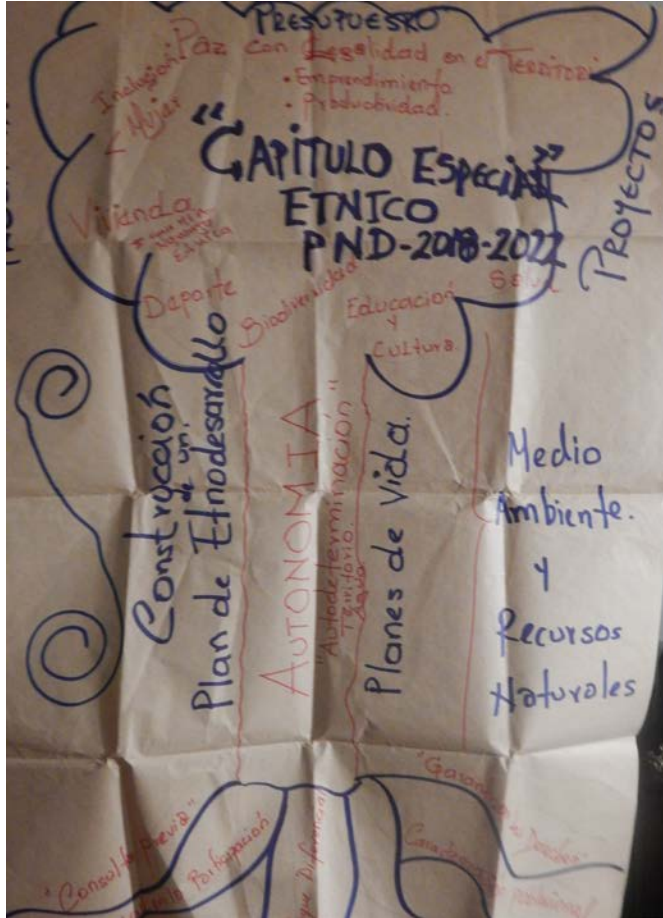 PRESUPUESTO
Paz con Legalidad en el Territori
• Emprendimiento
• Productividad.
Inclusión
< Mujer
"CAPITULO ESPECIAL"
ETNICO
PND-2018-2022
PROYECTOS
Vivienda
Deporte
Biodiversidad
Educación
y
Cultura.
Salud
Construcción
de un.
Plan de Etnodesarrollo
AUTONOMIA
"Autodeterminación"
Territorio.
Planes de Vida.
Medio
Ambiente.
y
Recursos
Naturales
"Consulta Previa"
Participación
que Diferencial